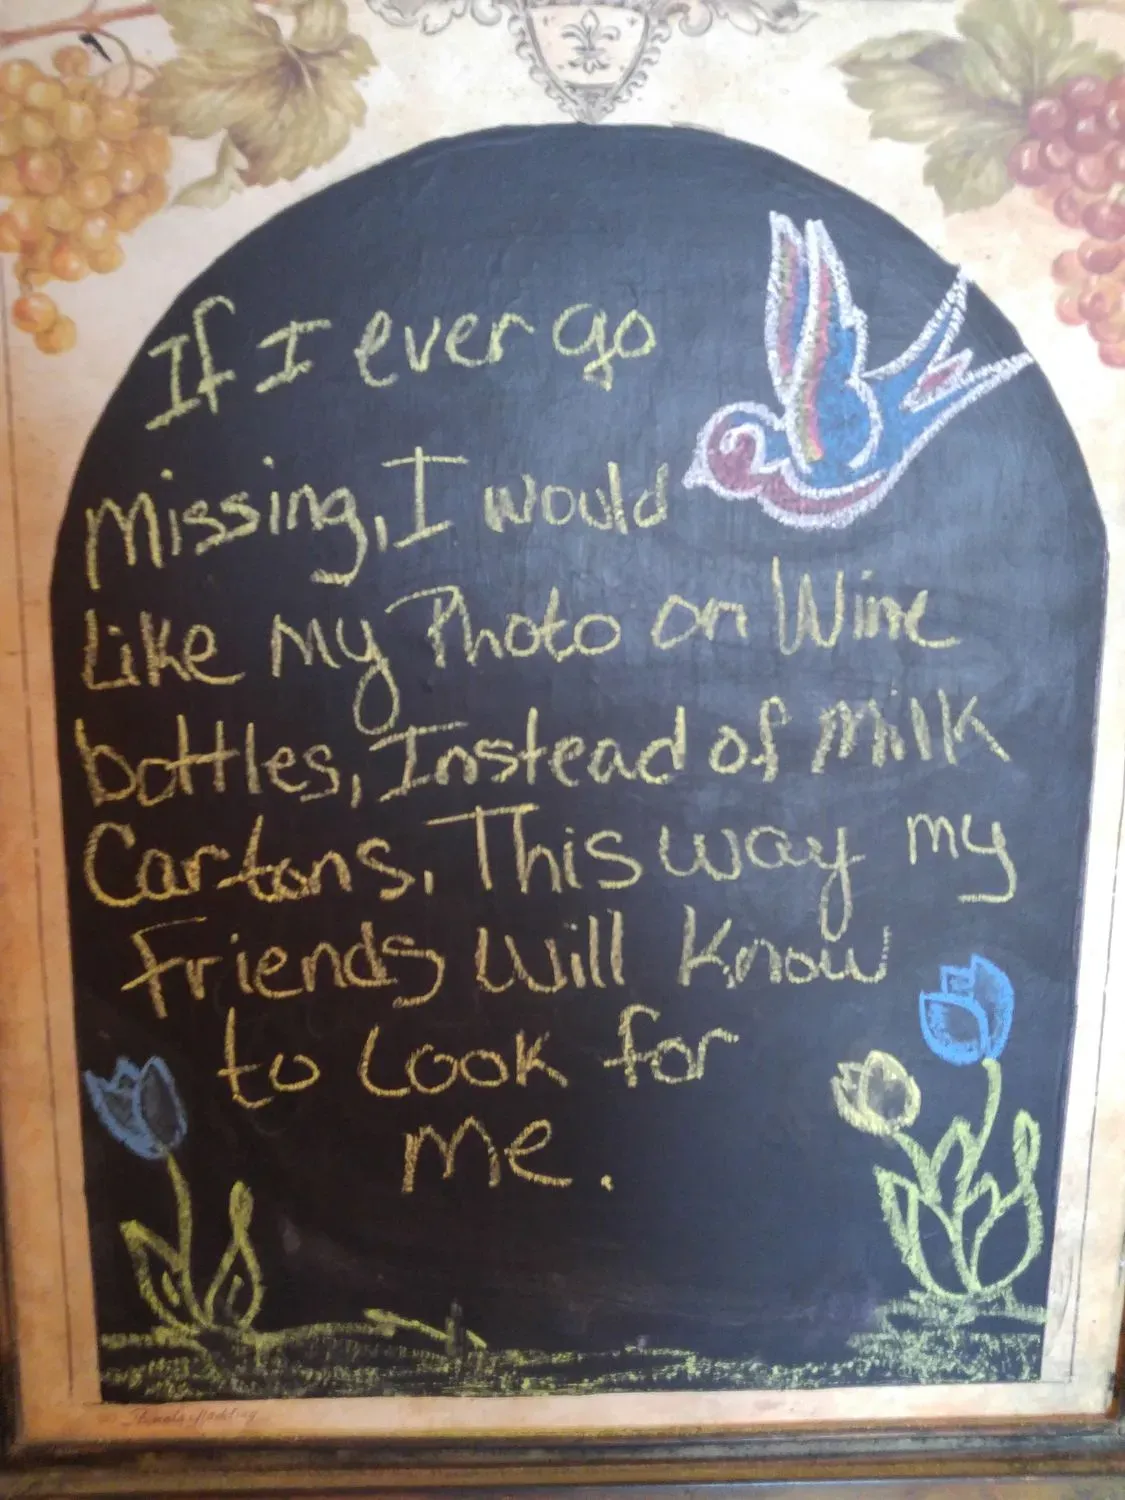 If I ever go
missing, I would
like my Photo on Wine
bottles, Instead of milk
Cartons. This way my
Friends Will Know
to Look for
me.